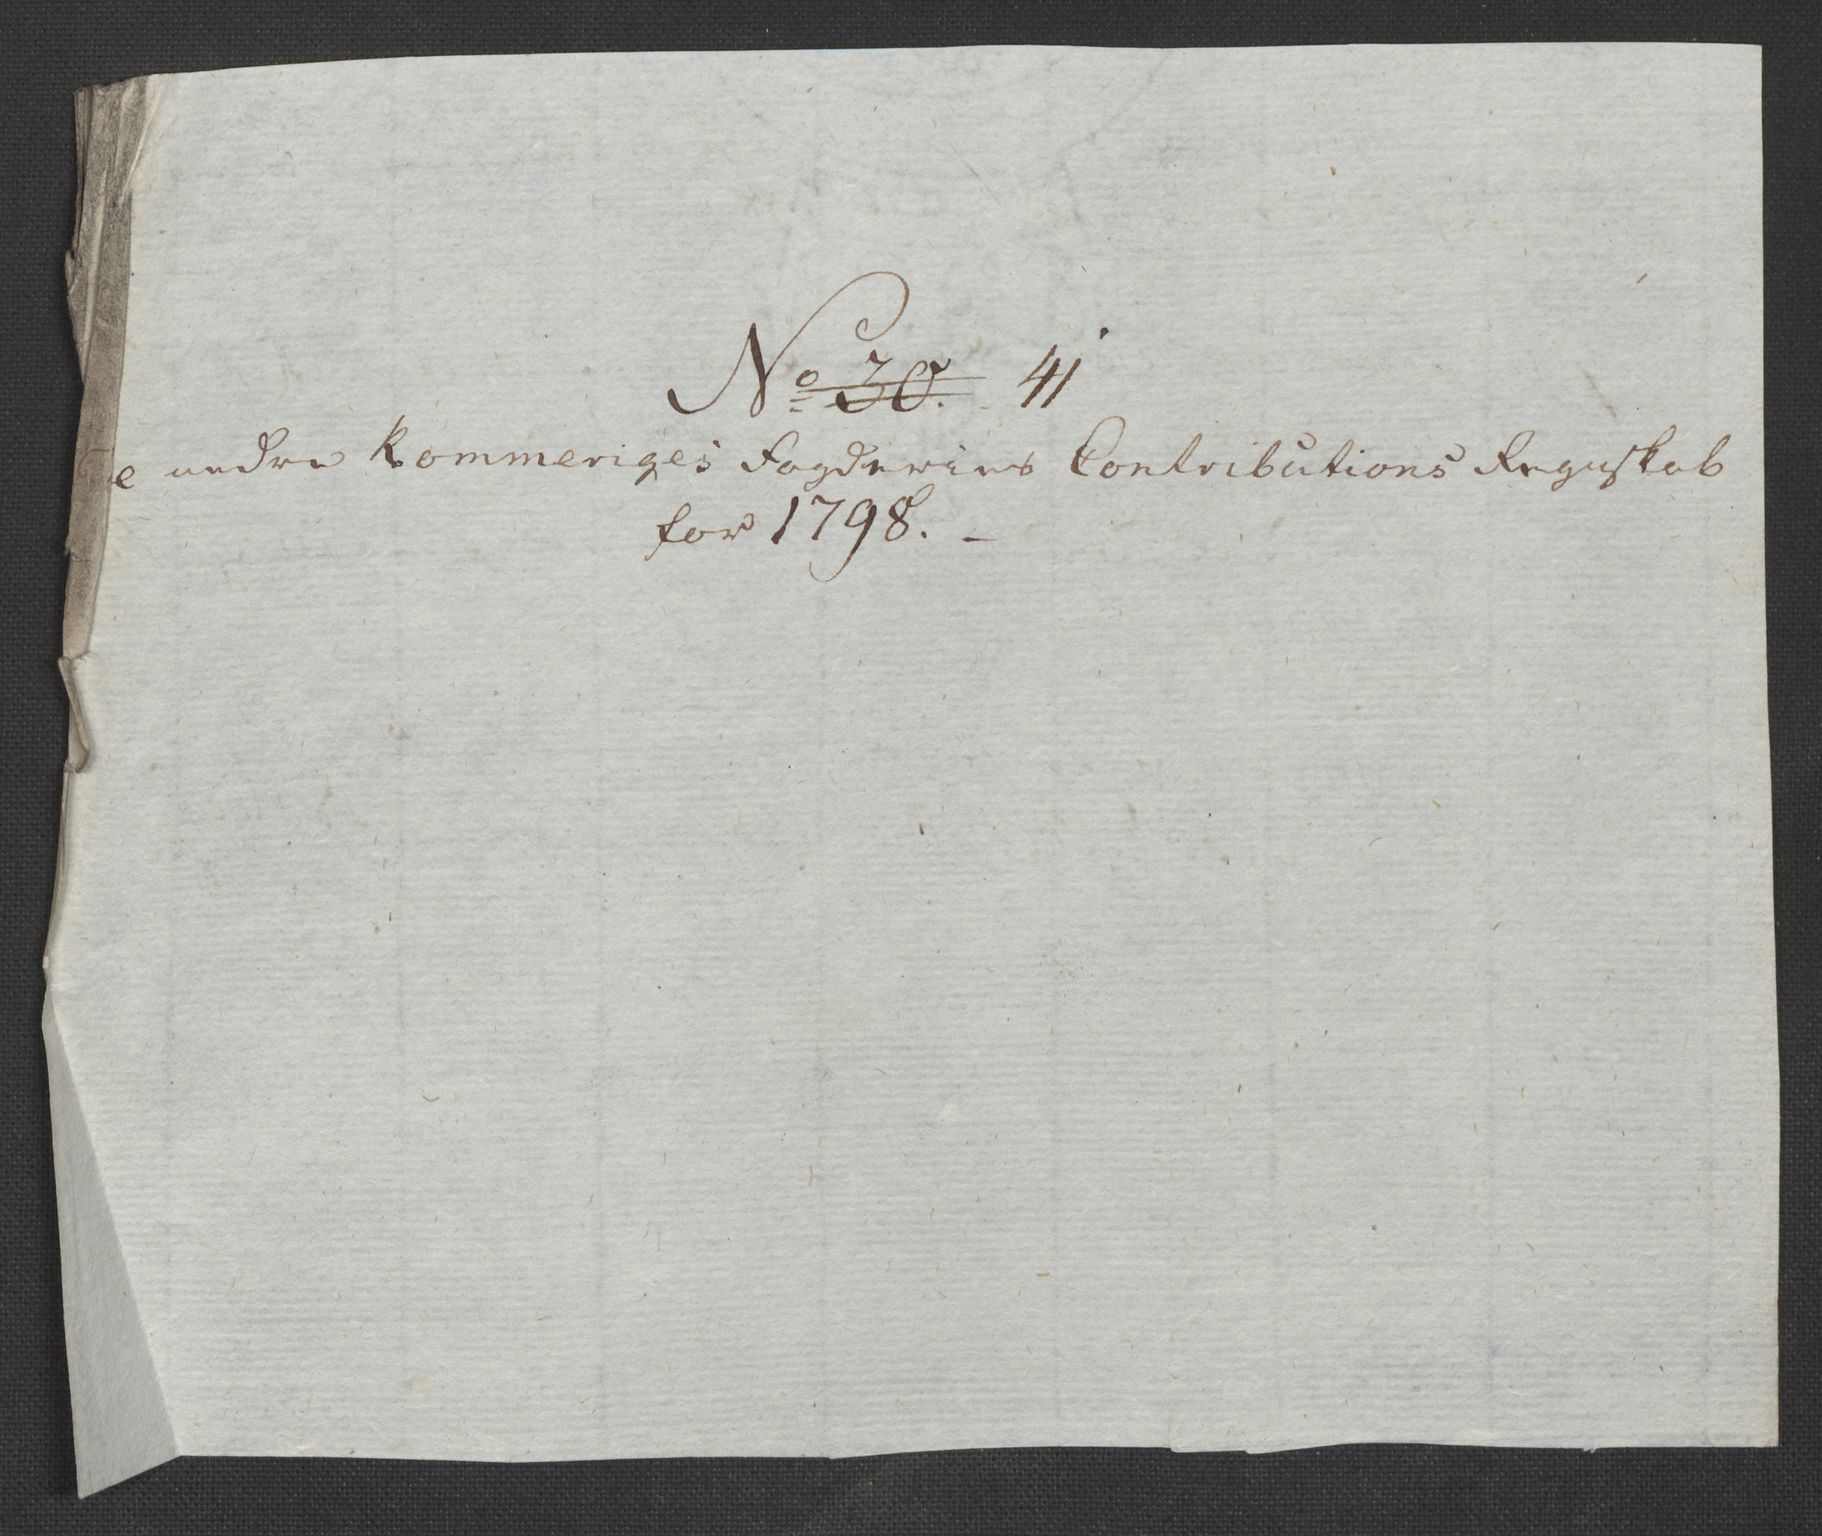 No 30. 41
e nedre Rommeriges Fogderies Contributions Regnskab
for 1798. -